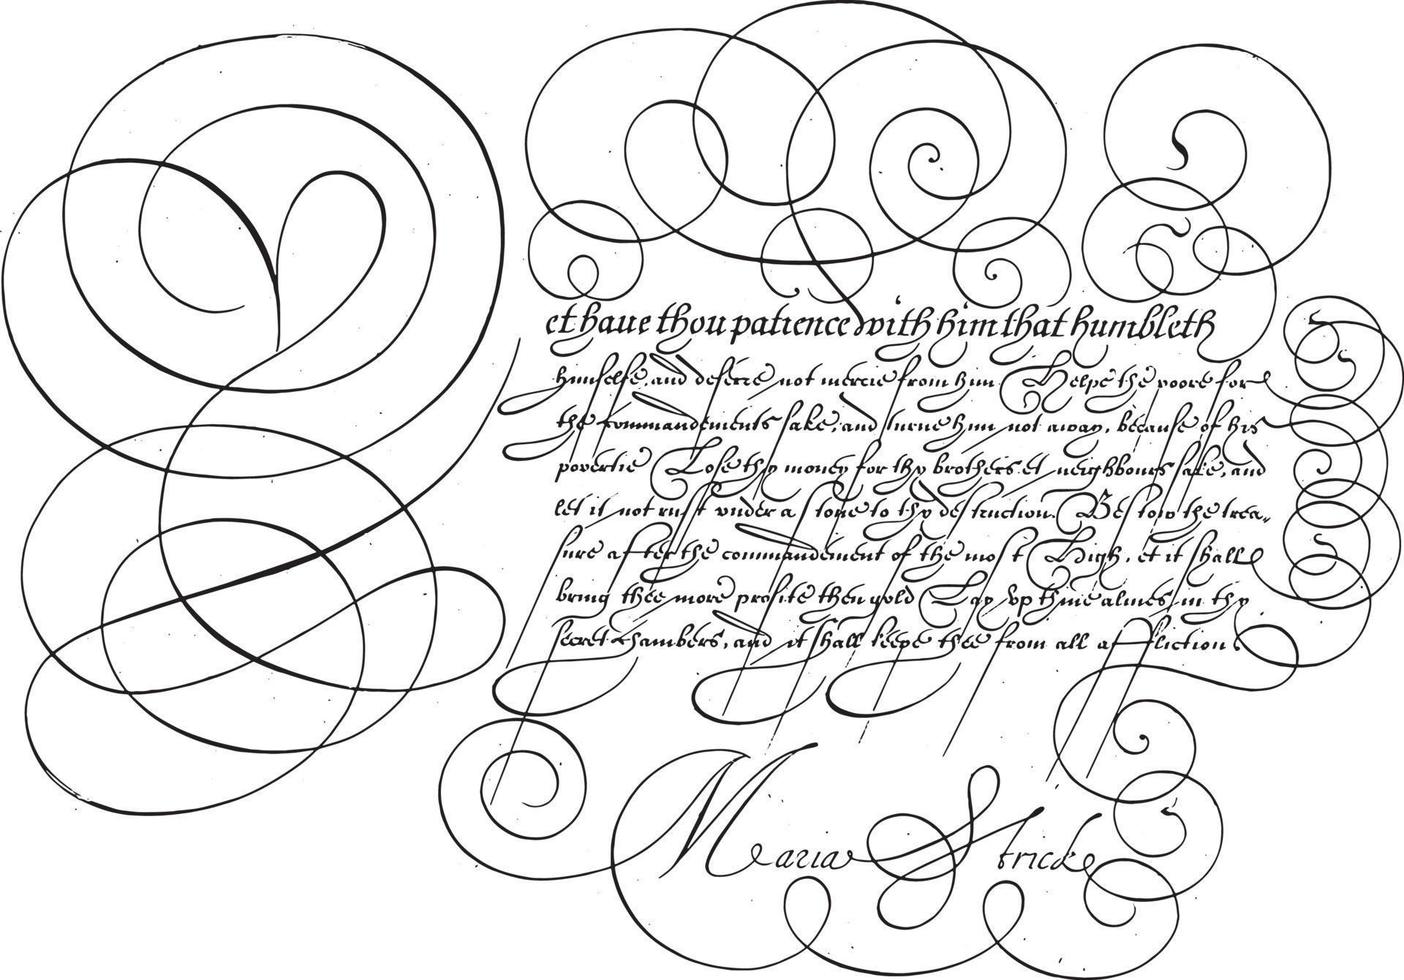 Yet haue thou patience with him that humbleth
himselfe, and deferre not mercie from him. Helpe the poore for
the commandements sake, and turne him not away, because of his
povertie. Lose thy money for thy brothers et neighbours sake, and
let it not rust vnder a stone to thy destruction. Bestow the trea-
sure after the commandement of the most High, et it shall
bring thee more profite then gold. Lay vp thine almes in thy
secret chambers, and it shall keepe thee from all affliction
Maria Strick